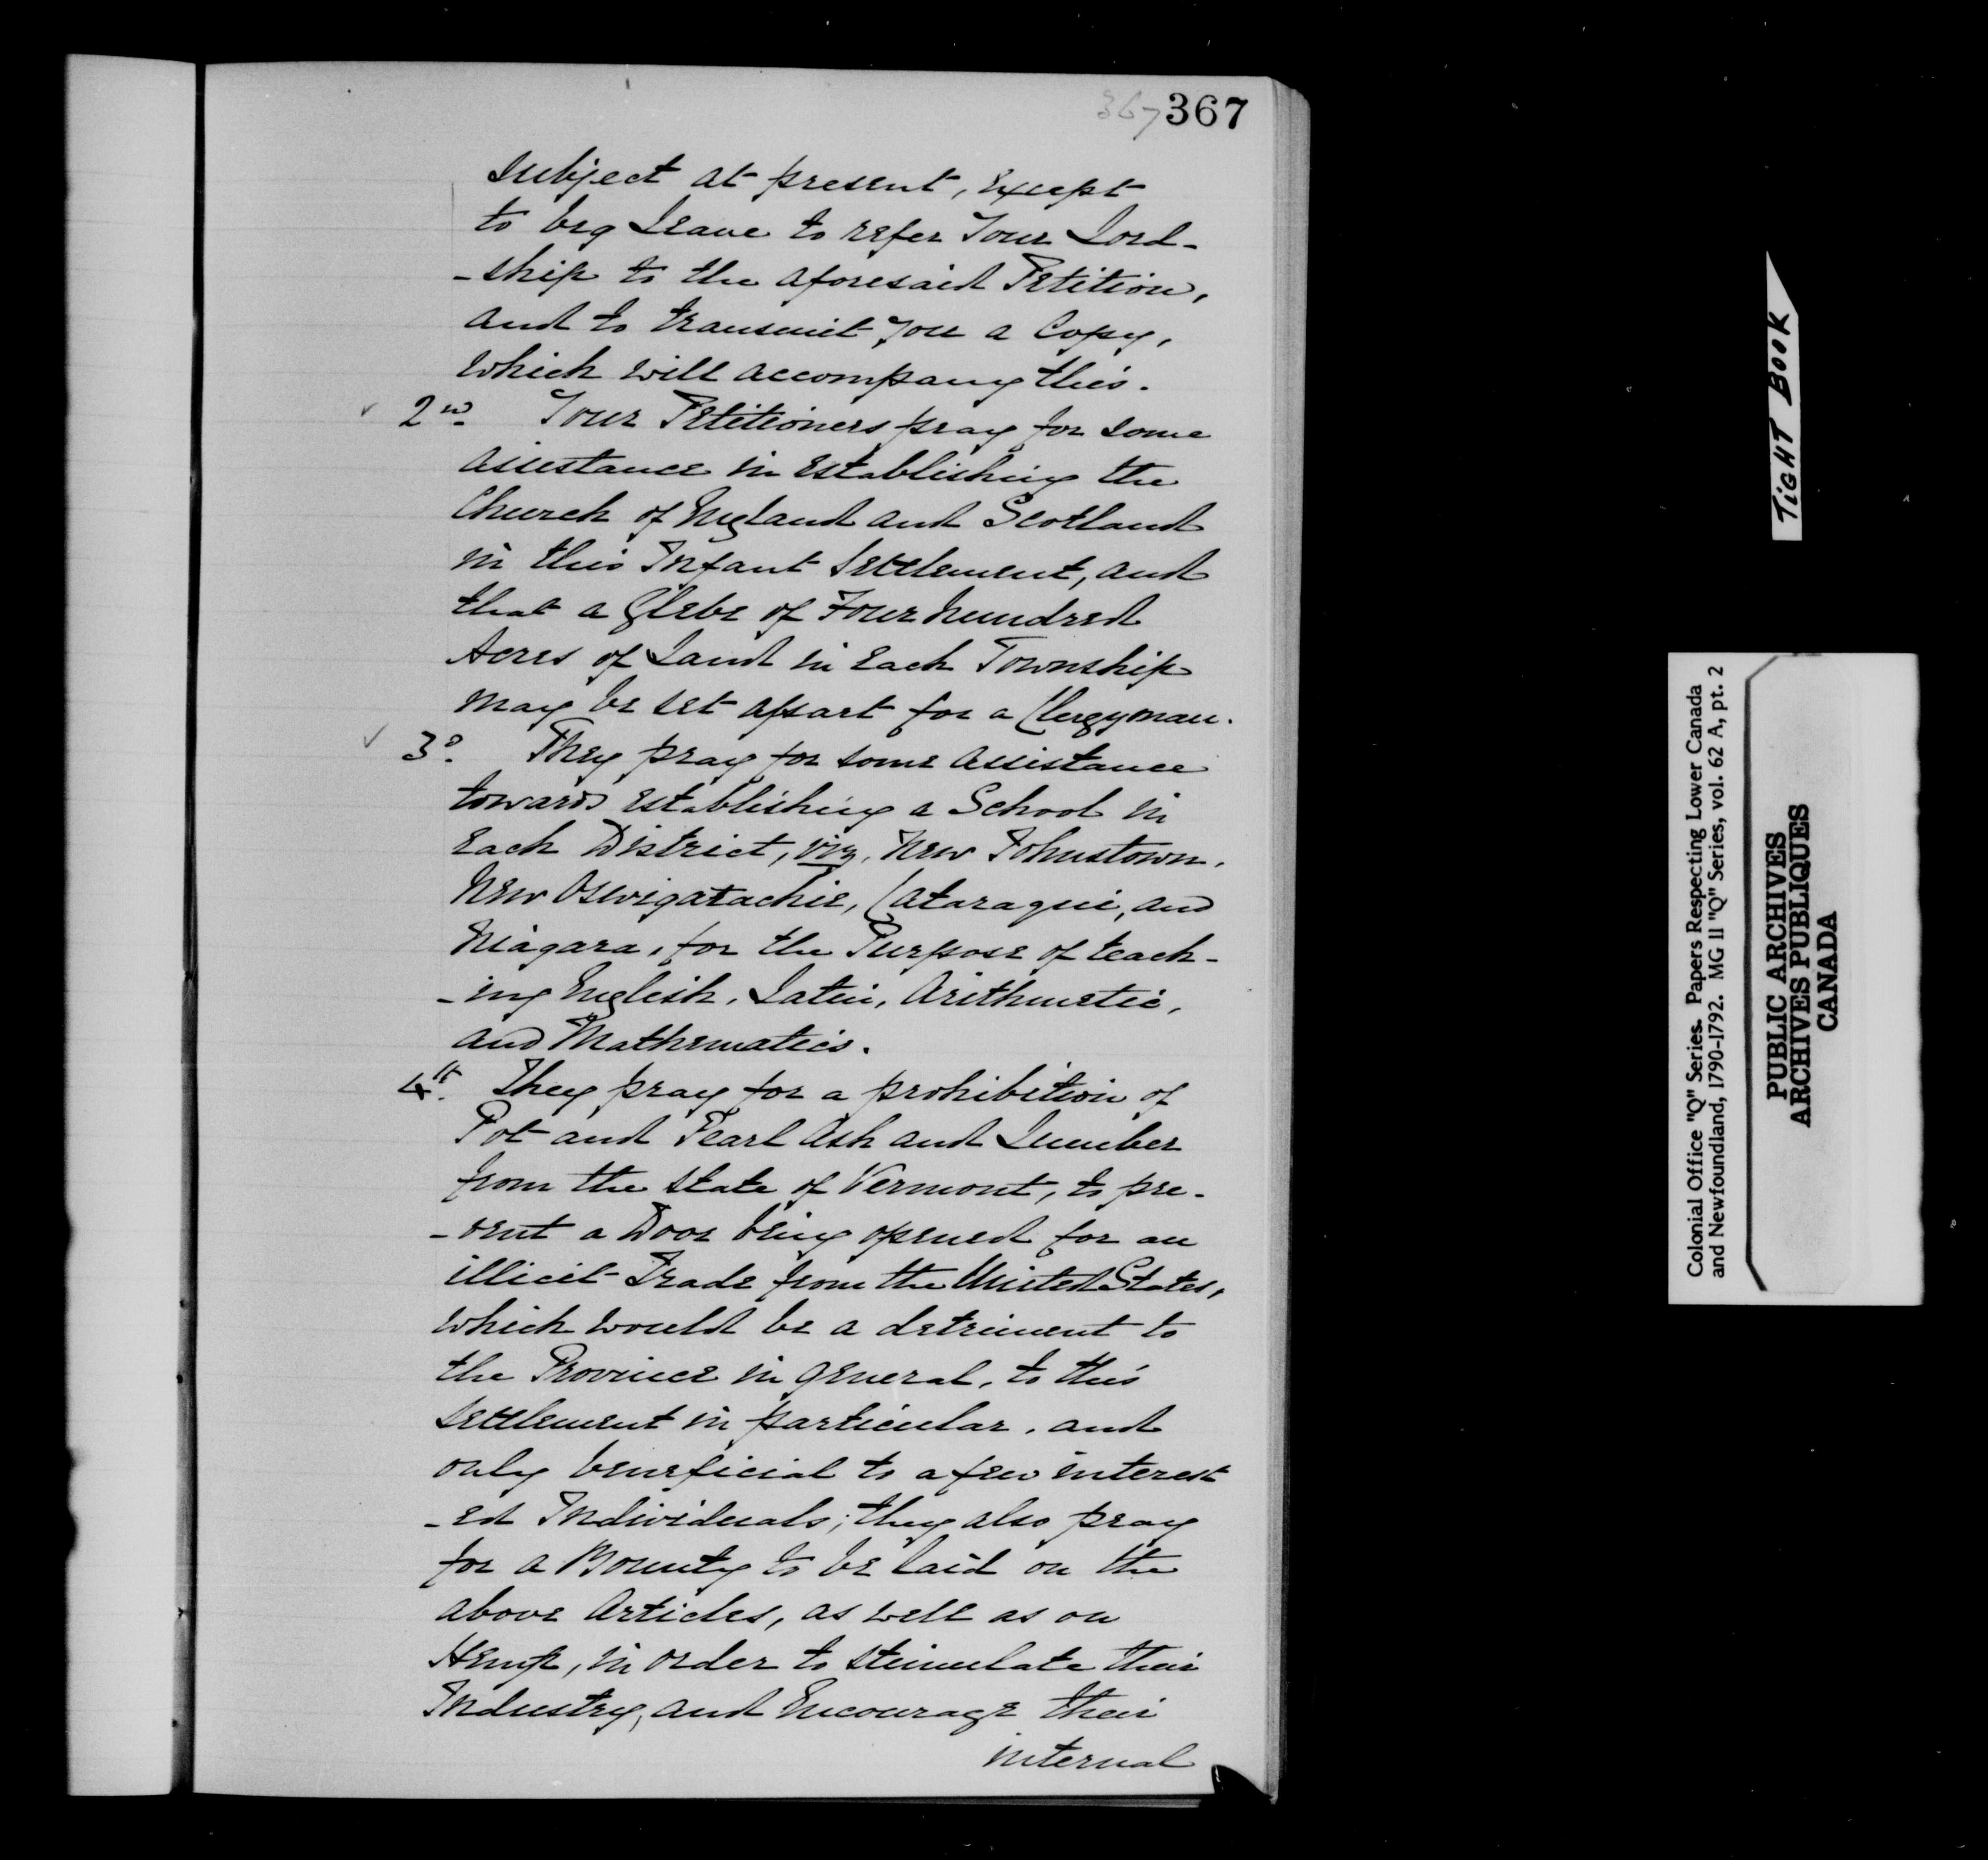 367 367
subject at present, except
to beg Leave to refer Your Lord-
-ship to the aforesaid Petition,
and to transmit you a Copy,
which will accompany this.
2nd. Your Petitioners pray for some
assistance in establishing the
Church of England and Scotland
in this Infant Settlement, and
that a Glebe of Four hundred
Acres of Land in each Township
may be set apart for a Clergyman.
3d. They pray for some assistance
towards establishing a School in
each District, viz, New Johnstown,
New Oswigatachie, Cataraqui, and
Niagara, for the Purpose of teach-
-ing English, Latin, Arithmetic,
and Mathematics.
4th. They pray for a prohibition of
Pot and Pearl Ash and Lumber
from the State of Vermont, to pre-
-vent a Door being opened for an
illicit Trade from the United States,
which would be a detriment to
the Province in general, to this
Settlement in particular, and
only beneficial to a few interest
-ed Individuals; they also pray
for a Bounty to be laid on the
above Articles, as well as on
Hemp, in order to stimulate their
Industry, and Encourage their
internal
TIGHT BOOK
Colonial Office "Q" Series. Papers Respecting Lower Canada
and Newfoundland, 1790-1792. MG 11 "Q" Series, vol. 62 A, pt. 2
PUBLIC ARCHIVES
ARCHIVES PUBLIQUES
CANADA